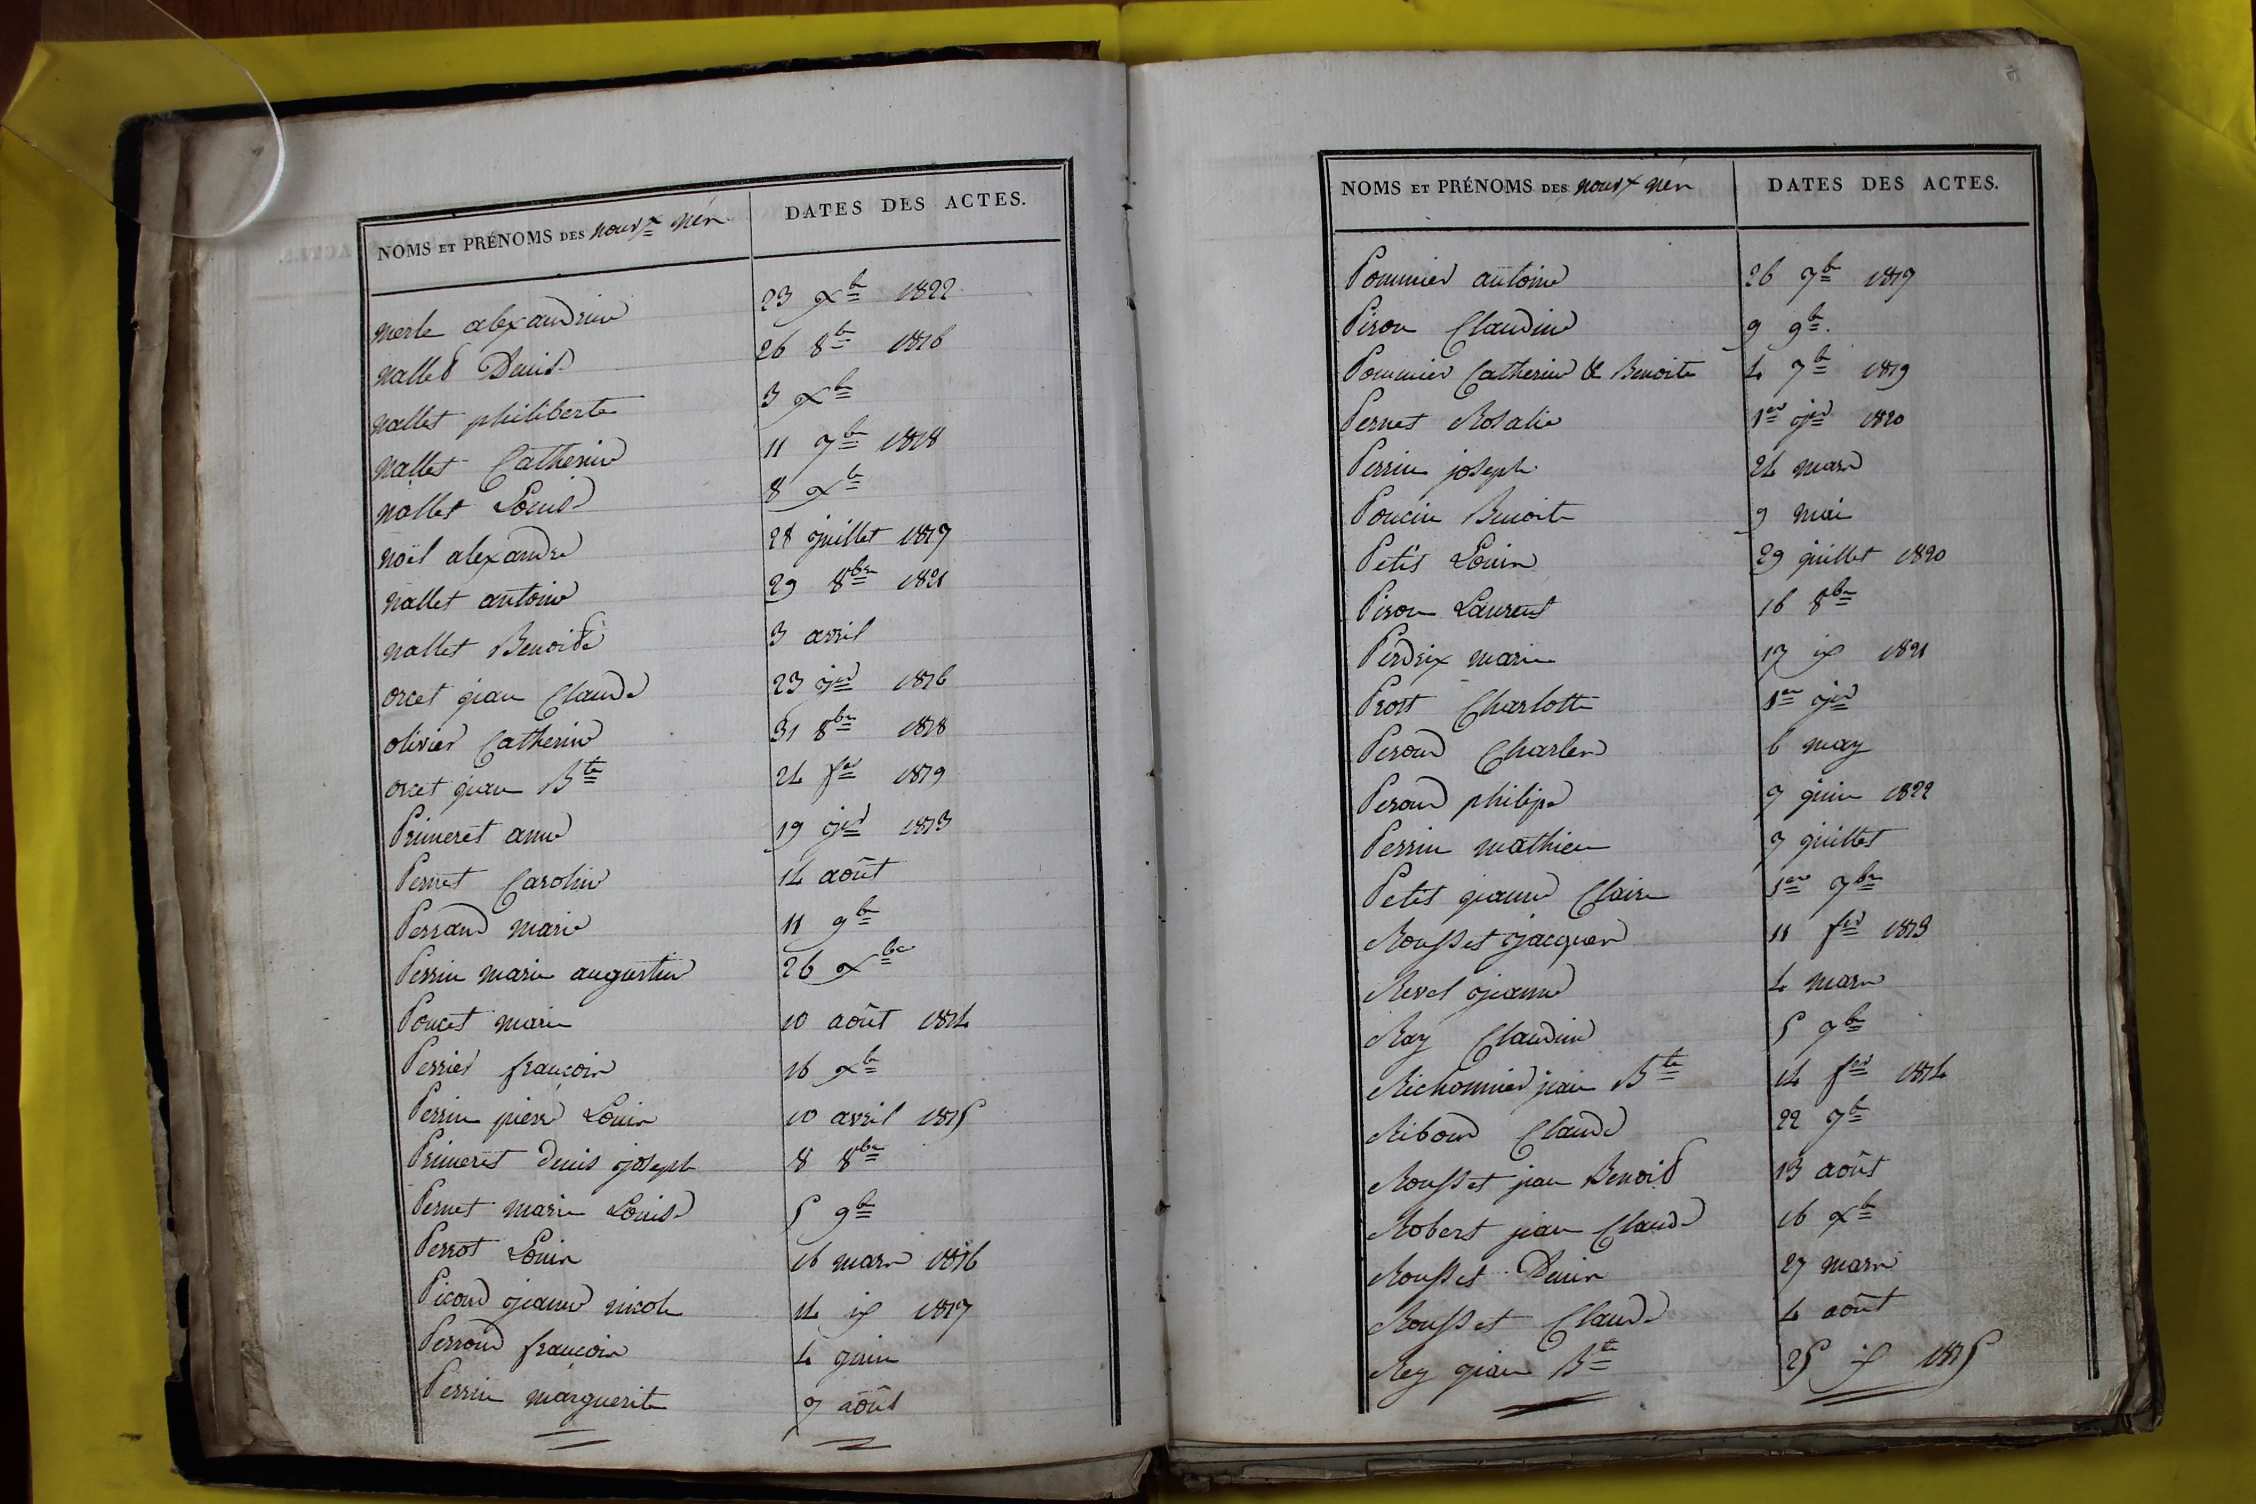 NOMS ET PRÉNOMS DES nouvx nés DATES DES ACTES.
merle alexandrine 23 xb 1822
nallet Denise 26 8b 1816
nallet philiberte 3 xb
nallet Catherine 11 7b 1818
nallet Louise 8 xb
noël alexandre 28 juillet 1819
nallet antoine 29 8bre 1821
nallet Benoite 3 avril
orcet jean Claude 23 jer 1816
olivier Catherine 31 8bre 1818
orcet jean Bte 24 fer 1819
Primeret anne 19 jer 1813
Pernet Caroline 14 août
Perraud marie 11 9b
Perrin marie augustine 26 xbre
Poncet marie 10 août 1814
Perrier françois 16 xb
Perrin pierre Louis 10 avril 1815
Primeret Denis joseph 8 8bre
Pernet marie Louise 5 9b
Perrot Louis 16 mars 1816
Picoud jeanne nicole 14 jer 1817
Perroud françois 4 juin
Perrin marguerite 7 août
NOMS ET PRÉNOMS DES nouvx nés DATES DES ACTES.
Pommier antoine 26 7b 1817
Piron Claudine 9 9b.
Pommier Catherine & Benoite 4 7b 1819
Pernet Rosalie 1er jer 1820
Perrin joseph 24 mars
Poncin Benoite 9 mai
Petit Louis 29 juillet 1820
Piron Laurent 16 8bre
Perdrix marie 17 jer 1821
Prost Charlotte 1er jer
Peroud Charles 6 may
Peroud philipe 9 juin 1822
Perrin mathieu 7 juillet
Petit jeanne Claire 1er 7bre
Rousset jacques 11 fer 1813
Revel jeanne 4 mars
Ray Claudine 5 7b
Richonnier jean Bte 14 fer 1814
Riboud Claude 22 7b
Rousset jean Benoit 13 août
Robert jean Claude 16 xb
Rousset Denis 27 mars
Rousset Claude 4 août
Rey jean Bte 25 jer 1815